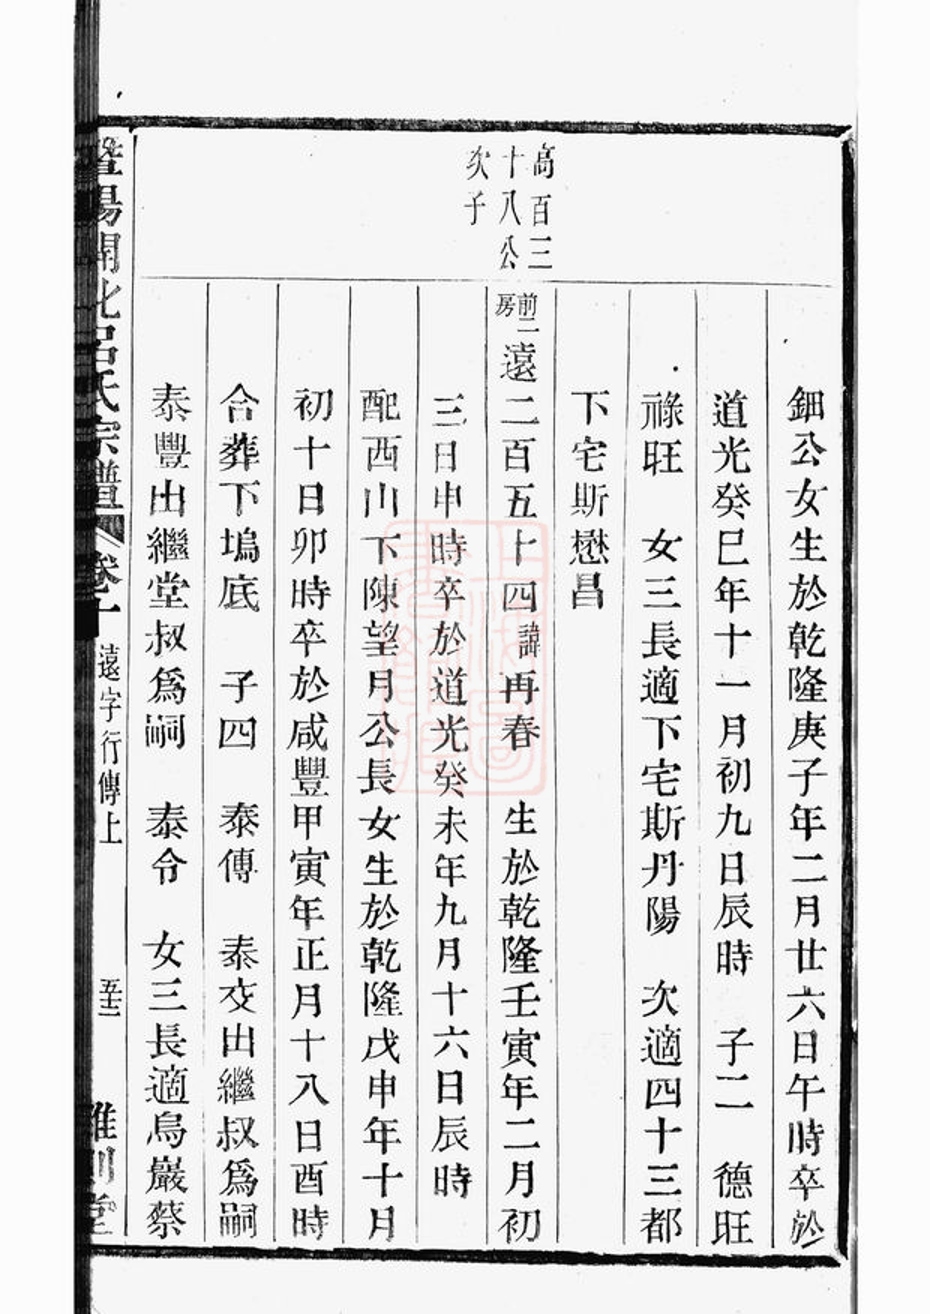 鈿公女生於乾隆庚子年二月廿六日午時卒於
道光癸巳年十一月初九日辰時 子二 德旺
祿旺 女三長適下宅斯丹陽 次適四十三都
下宅斯懋昌
高百三
十八公
次子
前二
房
遠二百五十四諱再春 生於乾隆壬寅年二月初
三日申時卒於道光癸未年九月十六日辰時
配西山下陳望月公長女生於乾隆戊申年十月
初十日卯時卒於咸豐甲寅年正月十八日酉時
合葬下塢底 子四 泰傳 泰交出繼叔為嗣
泰豐出繼堂叔為嗣 泰令 女三長適烏巖蔡
暨陽開化呂氏宗譜 卷十 遠字行傳上